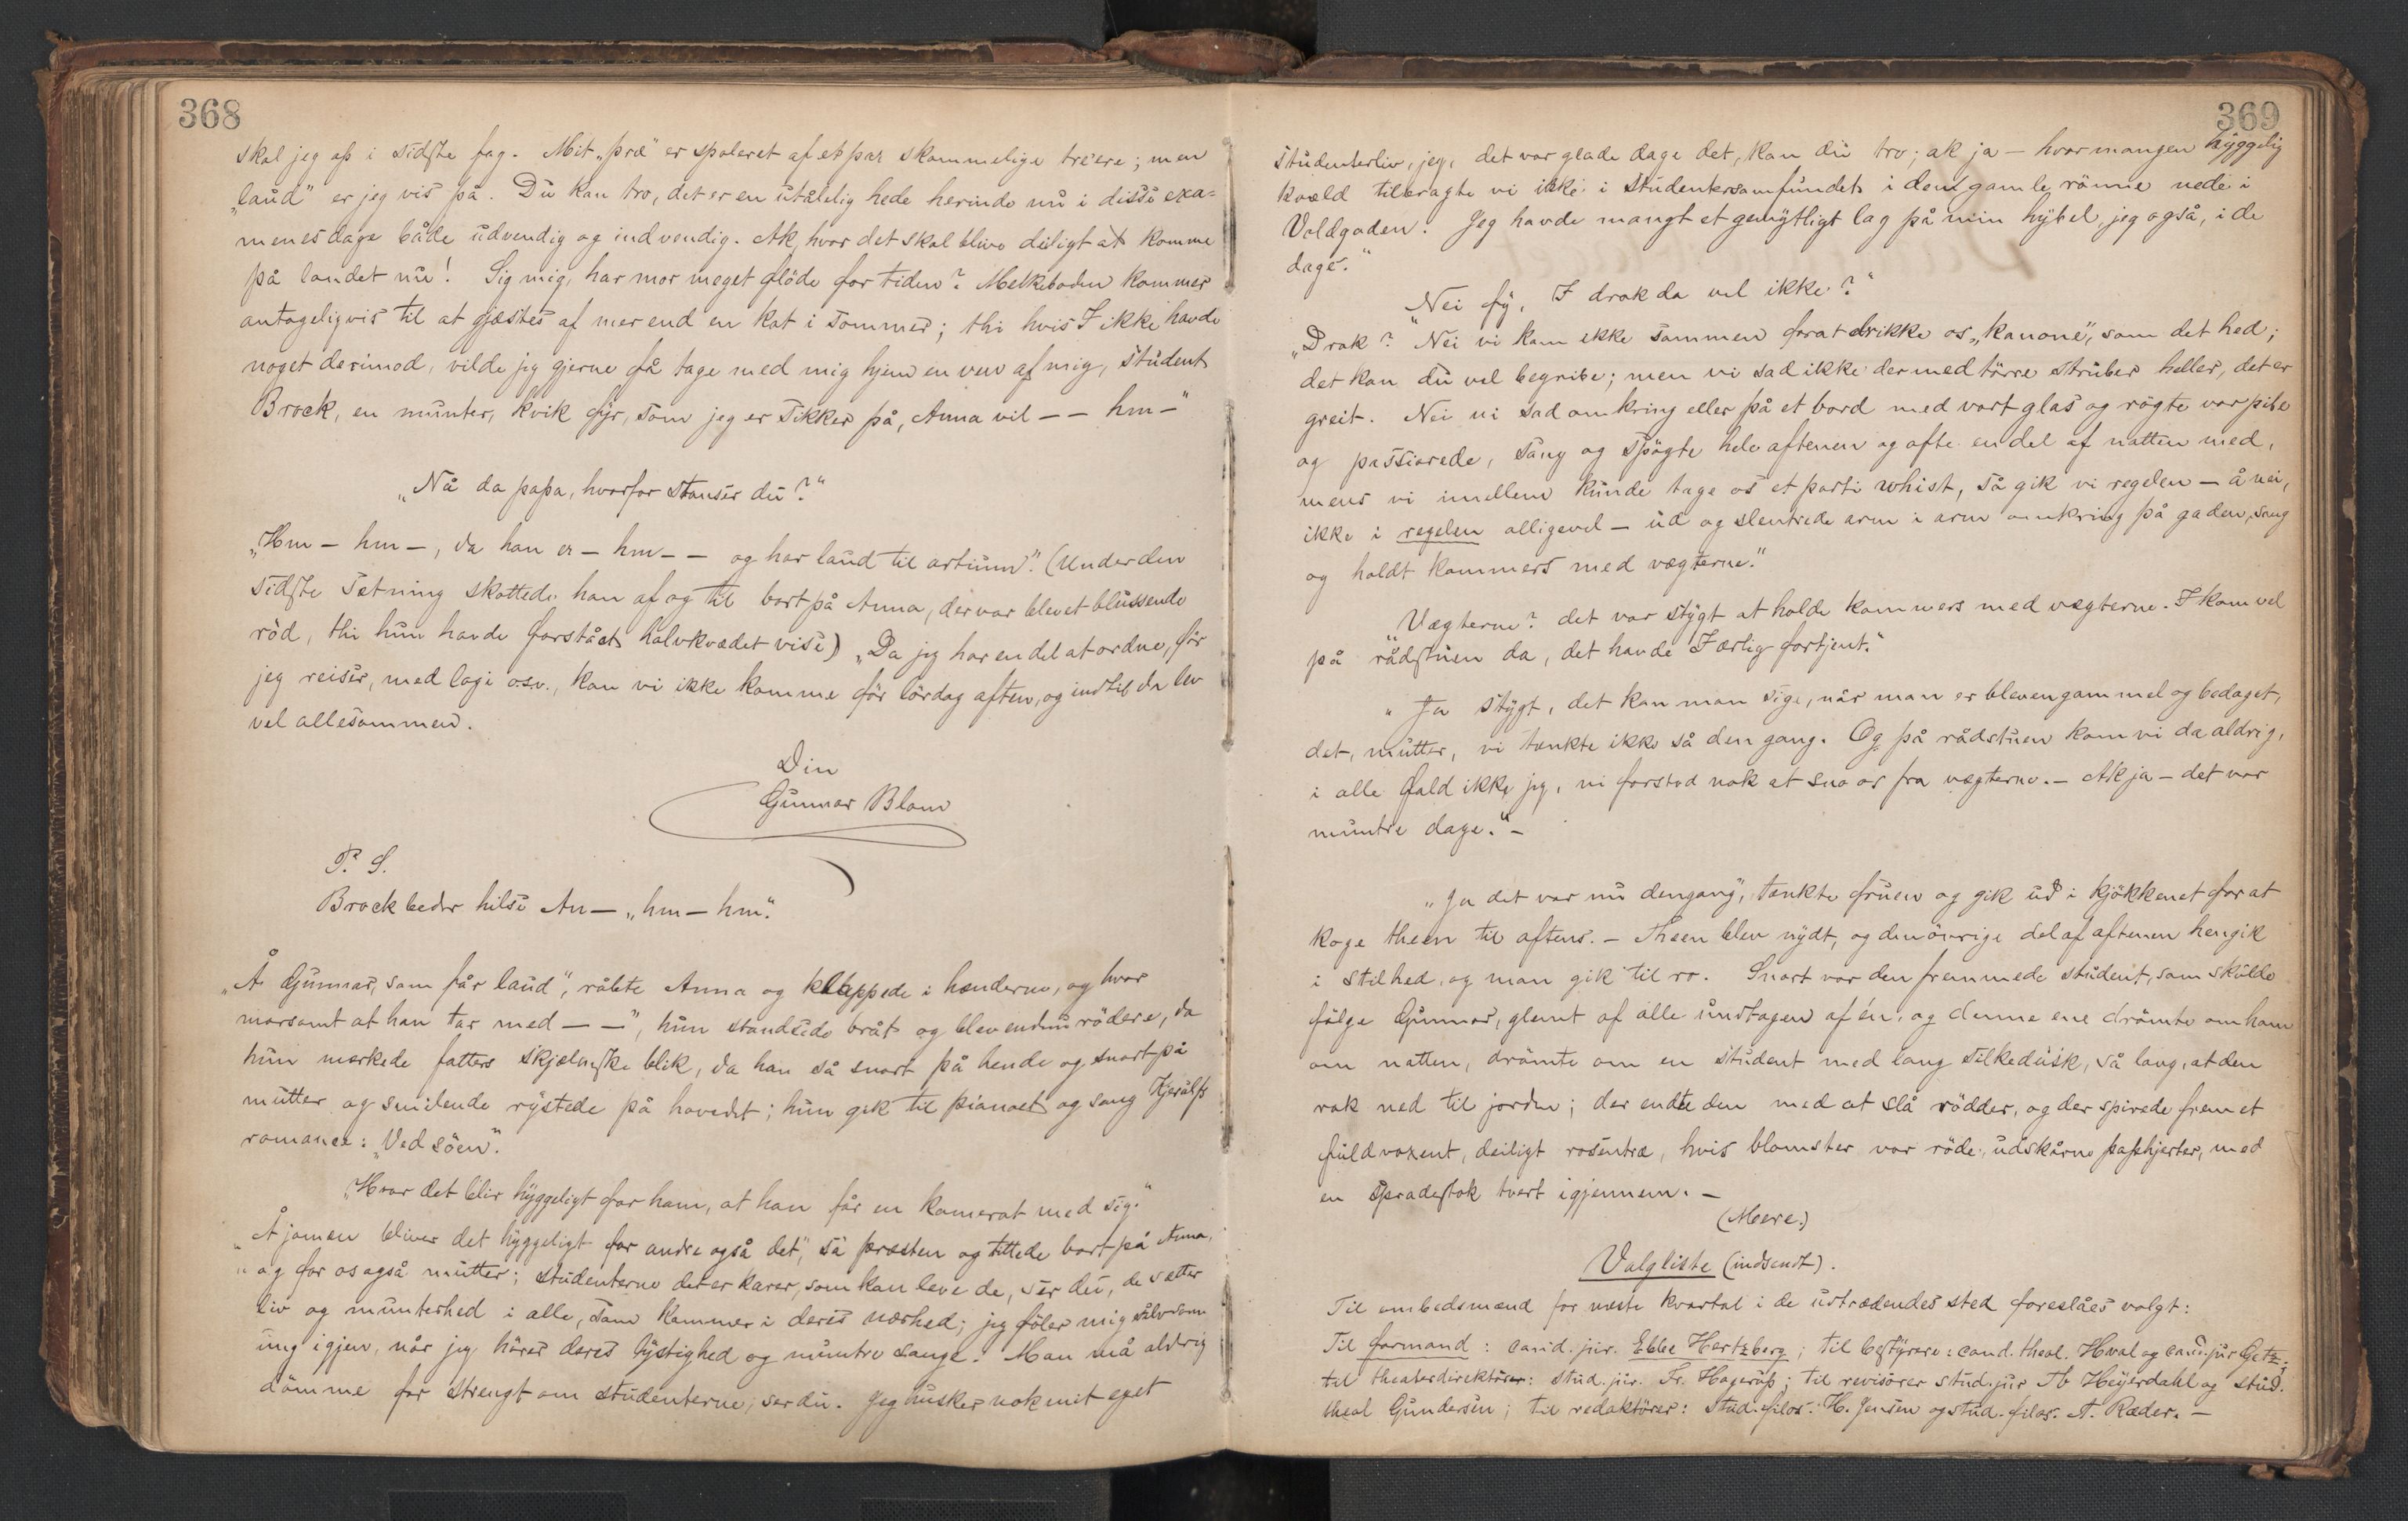 368
skal jeg op i sidste fag. Mit „præ" er spoleret af et par skammelige tre'ere; men
„laud" er jeg vis på. Du kan tro, det er en utålelig hede herinde nu i disse exa=
menesdage både udvendig og indvendig. Ak, hvor det skal blive deiligt at komme
på landet nu! Sig mig, har mor meget flöde for tiden? Melkeboden kommer
antageligvis til at gjæstes af mer end en kat i sommer; thi hvis I ikke havde
noget derimod, vilde jeg gjerne få tage med mig hjem en ven af mig, student
Brock, en munter, kvik fyr, som jeg er sikker på, Anna vil – – hm –"
„Nå da papa, hvorfor stanser du?"
„Hm – hm –, da han er – hm – – og har laud til artium". (Under den
sidste sætning skottede han af og til bort på Anna, der var blevet blussende
röd, thi hun havde forstået halvkvædet vise) „Da jeg har en del at ordne, för
jeg reiser, med logi osv., kan vi ikke komme för lördag aften, og indtil da lev
vel allesammen.
Din
Gunnar Blom
P. S.
Brock beder hilse An – „hm – hm".
„Å Gunnar, som får laud", råbte Anna og klappede i hænderne, og hvor
morsomt at han tar med – –", hun standsede bråt og blev endnu rödere, da
hun mærkede fatters skjælmske blik, da han så snart på hende og snart på
mutter og smilende rystede på hovedet; hun gik til pianoet og sang Kjerulfs
romance: „Ved söen".
„Hvor det blir hyggeligt for ham, at han får en kamerat med sig."
„Å jamen bliver det hyggeligt for andre også det", sa præsten og tittede bort på Anna,
„og for os også mutter; studenterne det er karer, som kan leve de, ser du, de sætter
liv og munterhed i alle, som kommer i deres nærhed; jeg föler mig selv som
ung igjen, når jeg hörer deres lystighed og muntre sange. Man må aldrig
dömme for strengt om studenterne, ser du. Jeg husker nok mit eget
369
studenterliv, jeg, det var glade dage det, kan du tro; ak ja – hvor mangen hyggelig
kvæld tilbragte vi ikke i studentersamfundet i den gamle rönne nede i
Voldgaden. Jeg havde mangt et gemytligt lag på min hybel, jeg også, i de
dage."
„Nei fy, I drak da vel ikke?"
„Drak? Nei vi kom ikke sammen for at drikke os „kanone", som det hed;
det kan du vel begribe; men vi sad ikke der med törre struber heller, det er
greit. Nei vi sad omkring eller på et bord med vort glas og rögte vor pibe
og passiarede, sang og spögte hele aftenen og ofte en del af natten med,
mens vi imellem kunde tage os et parti whist, så gik vi i regelen – å nei,
ikke i regelen alligevel – ud og slentrede arm i arm omkring på gaden, sang
og holdt kommers med vægterne."
„Vægterne? det var stygt at holde kommers med vægterne. I kom vel
på rådstuen da, det havde I ærlig fortjent."
„Ja stygt, det kan man sige, når man er bleven gammel og bedaget,
det, mutter, vi tænkte ikke så den gang. Og på rådstuen kom vi da aldrig,
i alle fald ikke jeg, vi forstod nok at sno os fra vægterne. – Ak ja – det var
muntre dage." –
„Ja det var nu dengang", tænkte fruen og gik ud i kjökkenet for at
koge theen til aftens. – Theen blev nydt, og den övrige del af aftenen hengik
i stilhed, og man gik til ro. Snart var den fremmede student, som skulde
fölge Gunnar, glemt af alle undtagen af én, og denne ene drömte om ham
om natten, drömte om en student med lang silkedusk, så lang, at den
rak ned til jorden; der endte den med at slå rödder, og der spirede frem et
fuldvoxent, deiligt rosentræ, hvis blomster var röde, udskårne paphjerter, med
en spradestok tvert igjennem. –
(Mere.)
Valgliste (indsendt).
Til embedsmænd for næste kvartal i de udtrædendes sted foreslåes valgt:
Til formand: cand. jur. Ebbe Hertzberg; til bestyrere: cand. theol. Hval og cand. jur Getz;
til theaterdirektörer: stud. jur. Fr. Hagerup; til revisorer stud. jur Th Heyerdahl og stud.
theol Gundersen; til redaktörer: Stud. filos. H. Jensen og stud. filos. A. Ræder. –